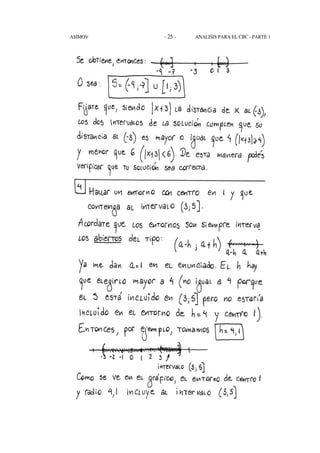 ASIMOV - 25 - ANALISIS PARA EL CBC - PARTE 1
Se obtiene, entonces:
-9 -7 -3 0 1 3
O sea: S = (-9,-7] ∪ [1;3)
Fijate que, siendo |x+3| la distancia de x al (-3),
los dos intervalos de la solución cumplen que su
distancia al (-3) es mayor o igual que 4 (|x+3|≥4)
y menor que 6 (|x+3|<6). De esta manera podés
verificar que tu solución sea correcta.
4) Hallar un entorno con centro en 1 y que
contenga al intervalo (3,5].
Acordate que los entornos son siempre interva
los abiertos del tipo: (a-h; a+h)
a-h a a+h
Ya me dan a=1 en el enunciado. El h hay
que elegirlo mayor a 4 (no igual a 4 porque
el 5 está incluido en (3;5] pero no estaría
incluido en el entorno de h=4 y centro 1).
Entonces, por ejemplo, tomamos h=4,1
-3 -2 -1 0 1 2 3
intervalo (3,5]
Como se ve en el gráfico, el entorno de centro 1
y radio 4,1 incluye al intervalo (3,5]